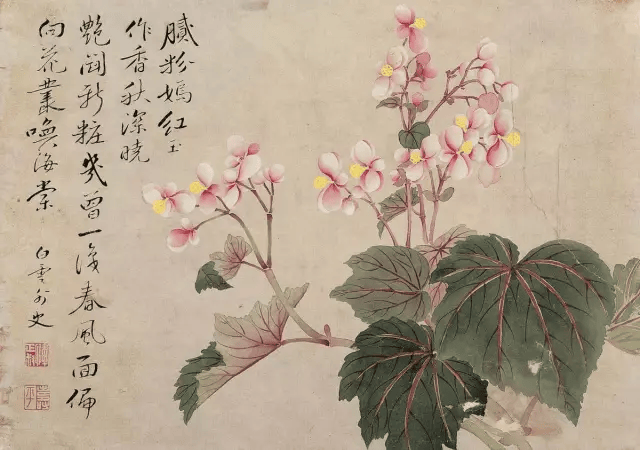 膩粉嫣紅玉
作香秋深曉
艷闘新粧幾曾一識春風面偏
向花叢喚海棠
白雲外史